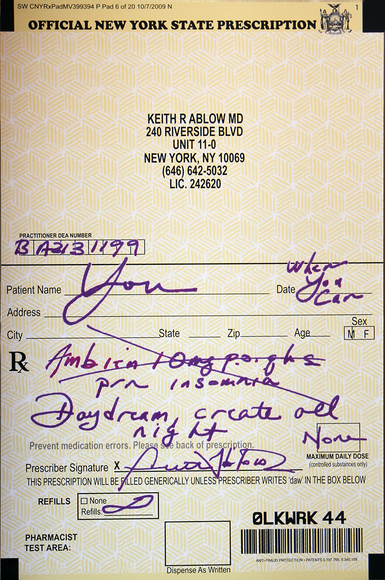 SW CNYRxPadMV399394 P Pad 6 of 20 10/7/2009 N
1
OFFICIAL NEW YORK STATE PRESCRIPTION
KEITH R ABLOW MD
240 RIVERSIDE BLVD
UNIT 11-0
NEW YORK, NY 10069
(646) 642-5032
LIC. 242620
PRACTITIONER DEA NUMBER
BA2131199
Patient Name You Date When You Can
Address
City State Zip Age Sex
M F
Rx Ambien 10mg po qhs
prn insomnia
Daydream, create all
night
Prevent medication errors. Please see back of prescription.
None
MAXIMUM DAILY DOSE
(controlled substances only)
Prescriber Signature X
THIS PRESCRIPTION WILL BE FILLED GENERICALLY UNLESS PRESCRIBER WRITES 'daw' IN THE BOX BELOW
REFILLS None
Refills:
PHARMACIST
TEST AREA:
0LKWRK 44
Dispense As Written